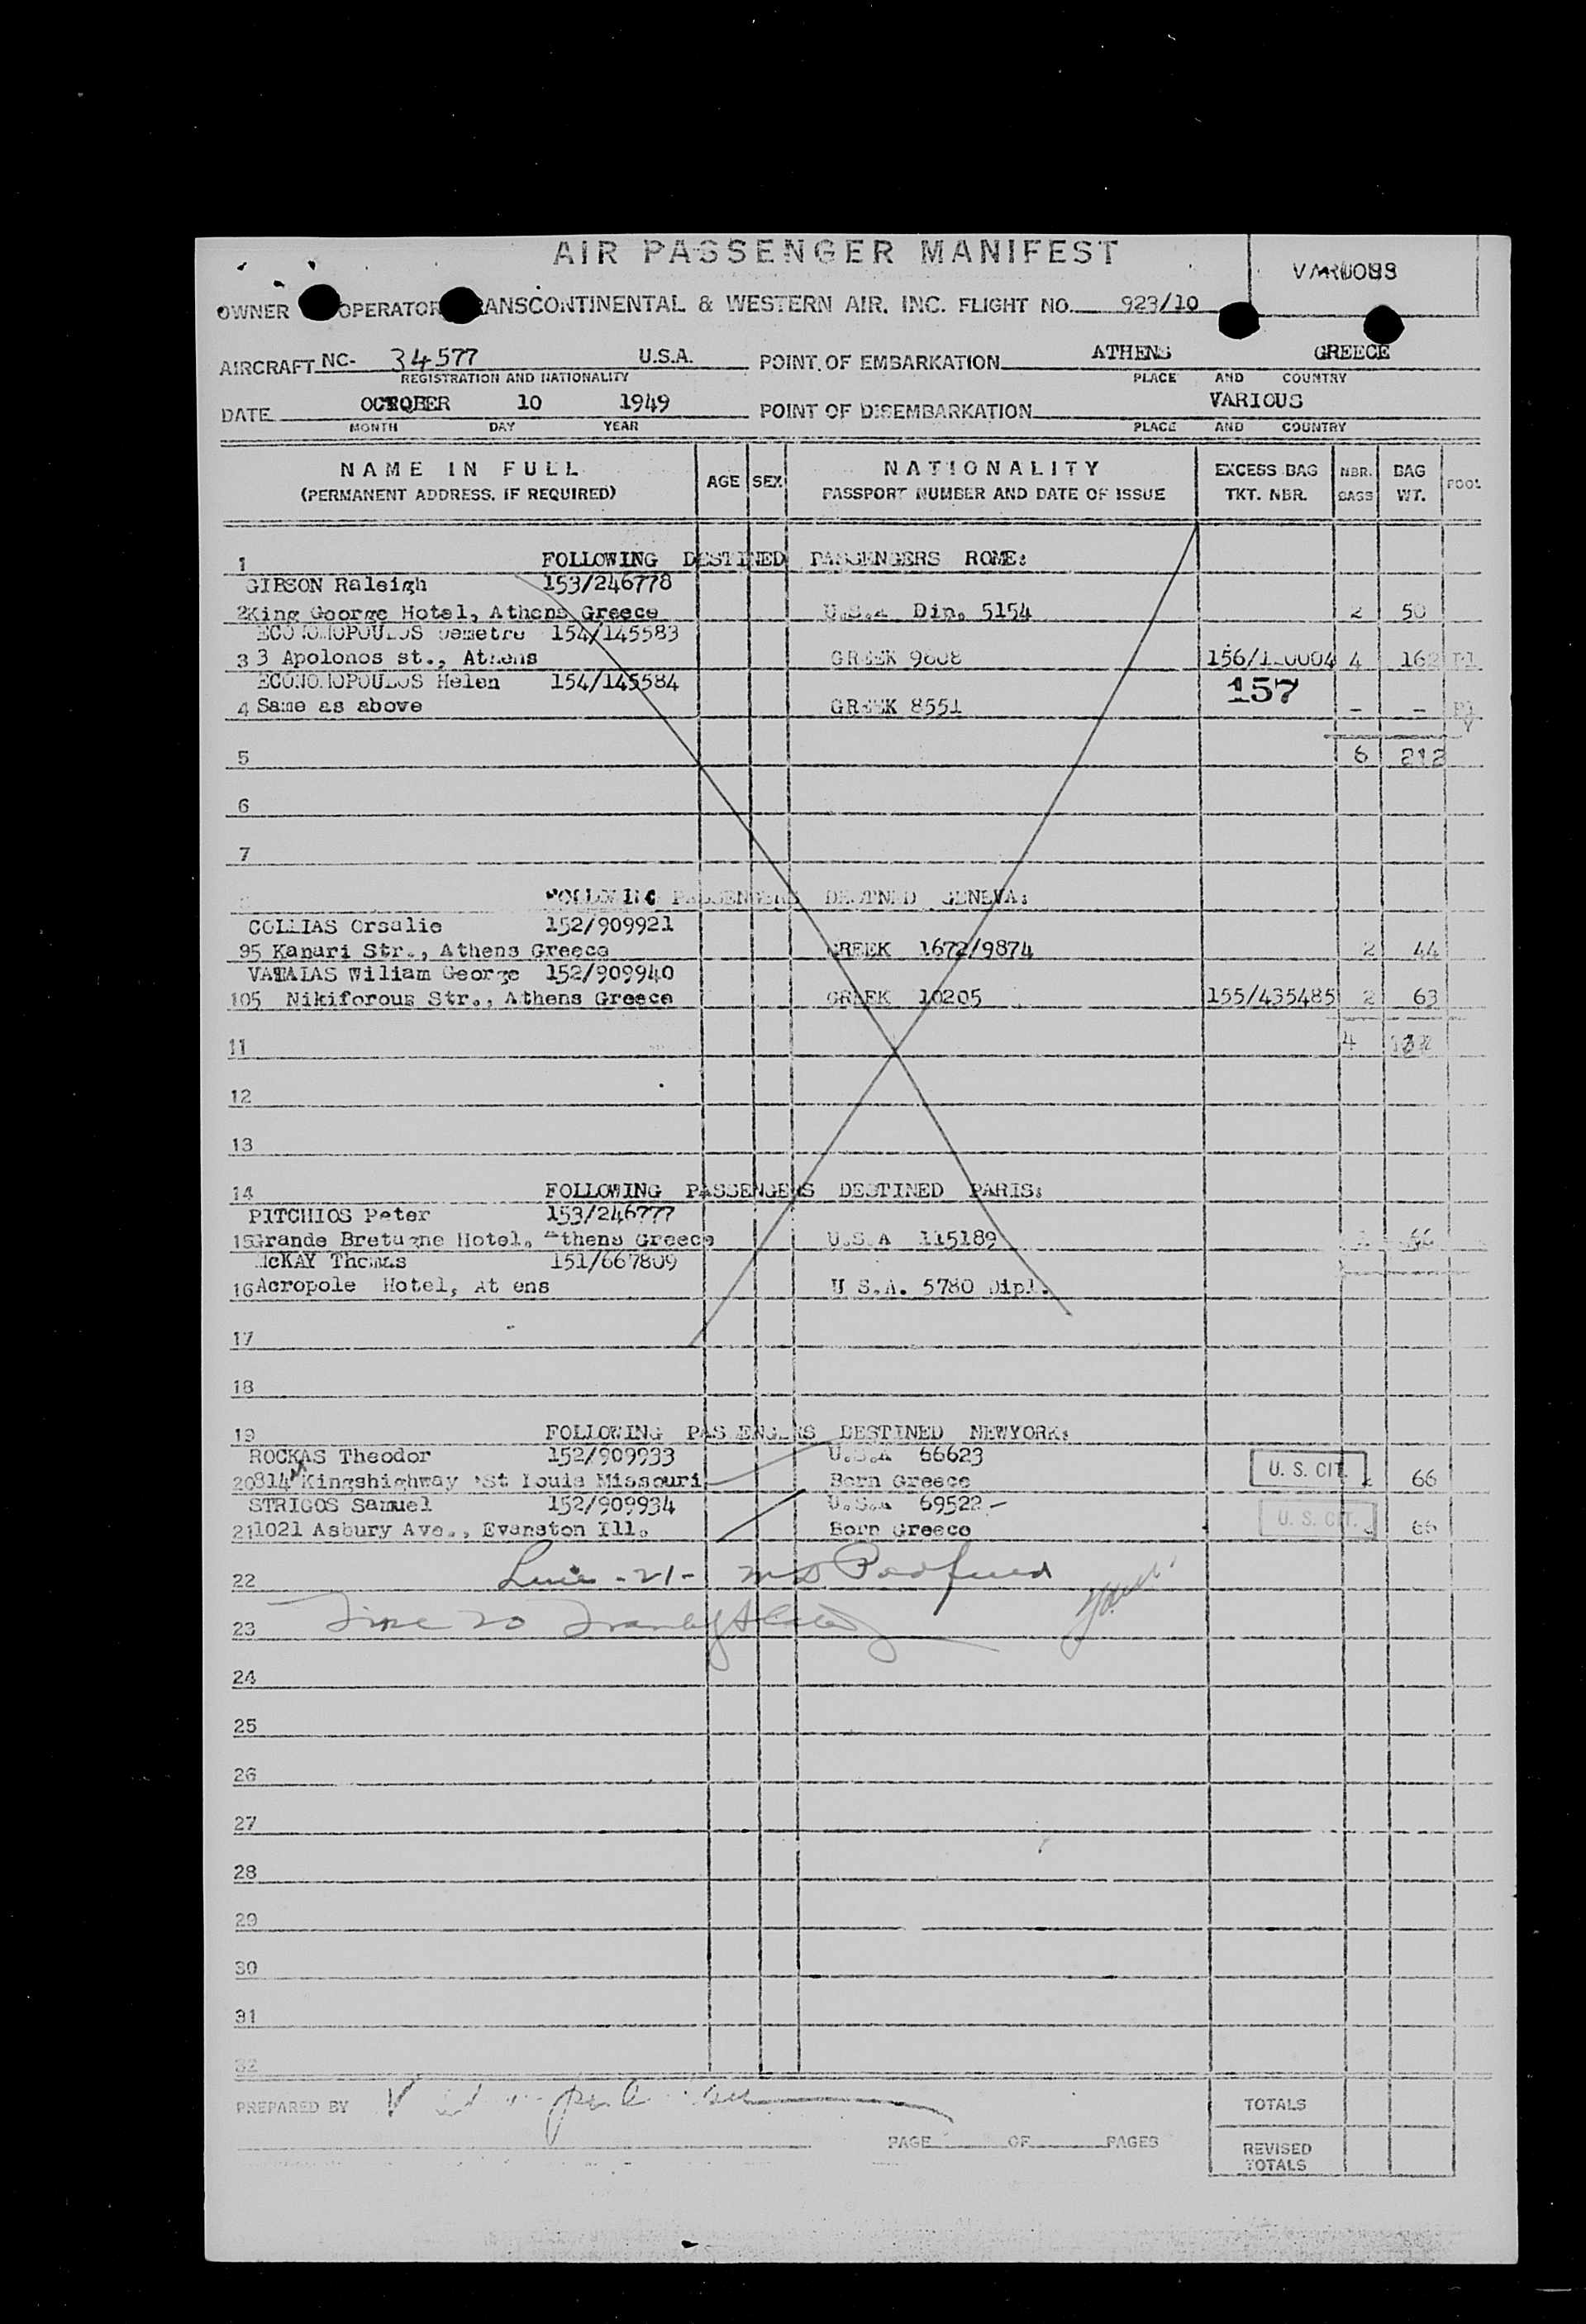 AIR PASSENGER MANIFEST
OWNER OPERATOR TRANSCONTINENTAL & WESTERN AIR, INC. FLIGHT NO. 923/10
AIRCRAFT NC- 34577 U.S.A. POINT OF EMBARKATION ATHENS GREECE
REGISTRATION AND NATIONALITY PLACE AND COUNTRY
DATE OCTOBER 10 1949 POINT OF DISEMBARKATION VARIOUS
MONTH DAY YEAR PLACE AND COUNTRY
NAME IN FULL AGE SEX NATIONALITY EXCESS BAG NBR. BAG
(PERMANENT ADDRESS, IF REQUIRED) PASSPORT NUMBER AND DATE OF ISSUE TKT. NBR. BAGS WT.
1 FOLLOWING DESTINED PASSENGERS ROME:
GIBSON Raleigh 153/246778
2 King George Hotel, Athens Greece U.S.A Dip. 5154 2 50
ECONOMOPOULOS Demetre 154/145583
3 3 Apolonos st., Athens GREEK 9808 4 162
ECONOMOPOULOS Helen 154/145584 157
4 Same as above GREEK 8551 - -
5 6 212
6
7
FOLLOWING PASSENGERS DESTINED GENEVA:
COLLIAS Orsalie 152/909921
95 Kanari Str., Athens Greece GREEK 1672/9874 2 44
VATAIAS Wiliam George 152/909940
105 Nikiforous Str., Athens Greece GREEK 10205 155/435485 2 63
11 4
12
13
14 FOLLOWING PASSENGERS DESTINED PARIS:
PITCHIOS Peter 153/246777
15 Grande Bretagne Hotel, Athens Greece U.S.A 115189 66
McKAY Thomas 151/667809
16 Acropole Hotel, At ens U S.A. 5780 Dipl.
17
18
19 FOLLOWING PASSENGERS DESTINED NEWYORK:
ROCKAS Theodor 152/909933 U.S.A 66623
20 814 N Kingshighway St Louis Missouri Born Greece U. S. CIT. 66
STRIGOS Samuel 152/909934 U.S.A 69522 -
21 1021 Asbury Ave., Evanston Ill. Born Greece U. S. CIT. 66
22 Line - 21 -
23 Line 20
24
25
26
27
28
29
30
31
32
PREPARED BY TOTALS
PAGE OF PAGES REVISED
TOTALS